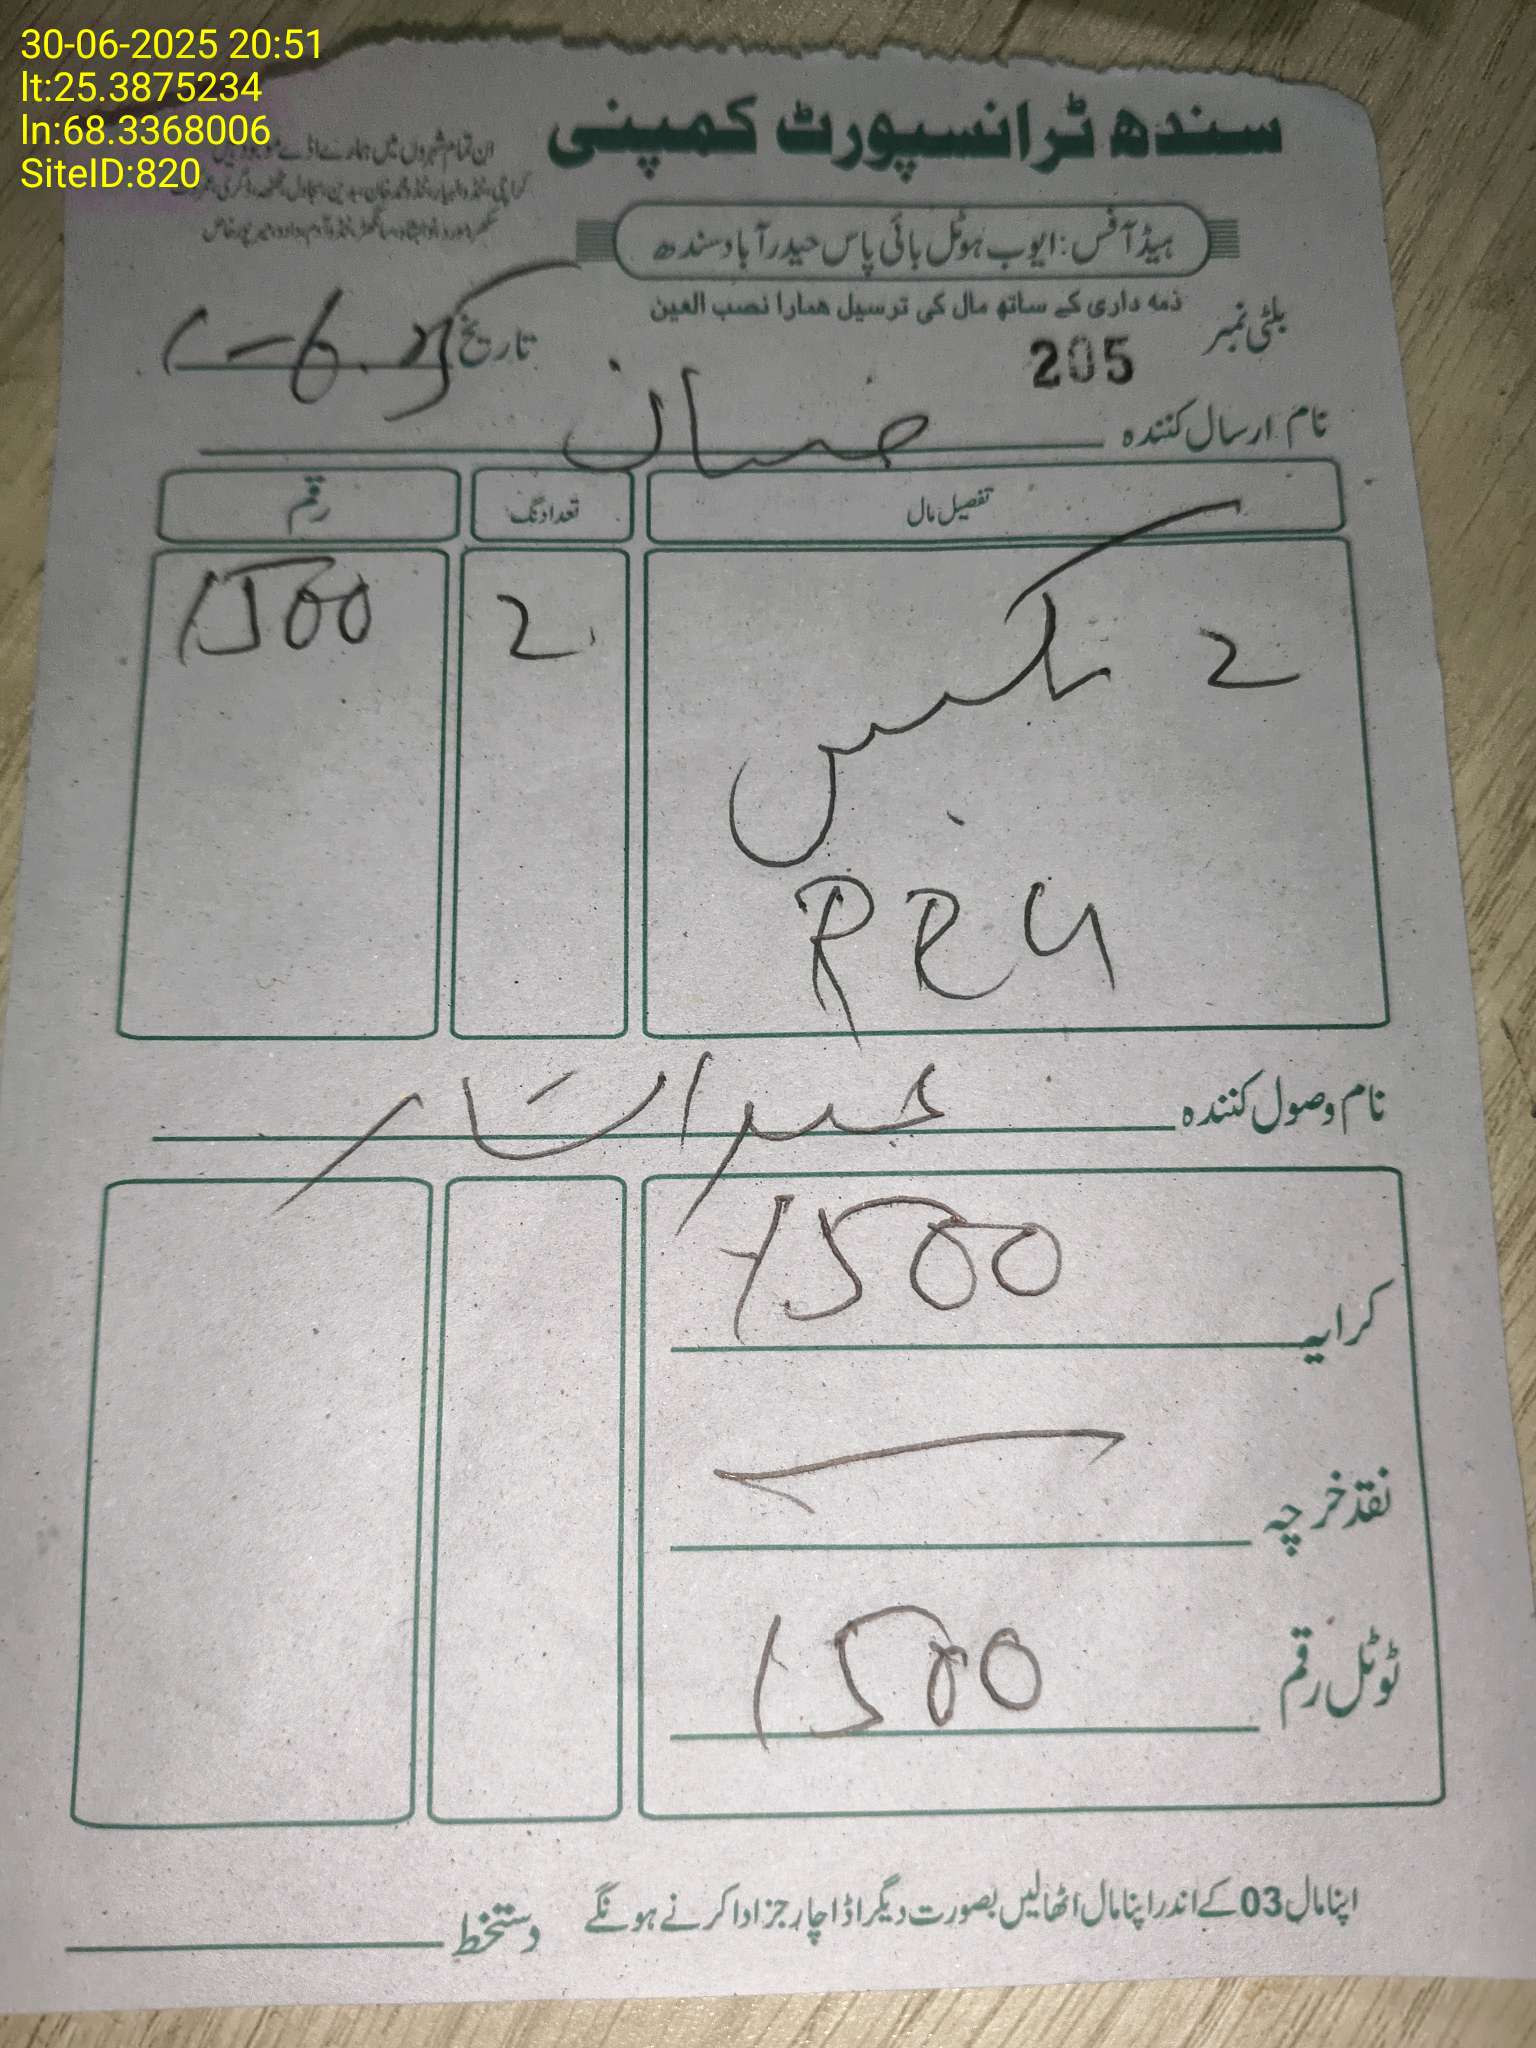 30-06-2025 20:51
lt:25.3875234
ln:68.3368006
SiteID:820
سندھ ٹرانسپورٹ کمپنی
ان تمام شہروں میں ہمارے اڈے
ہیڈ آفس: ایوب ہوٹل بائی پاس حیدرآباد سندھ
ذمہ داری کے ساتھ مال کی ترسیل ہمارا نصب العین
بلٹی نمبر 205
تاریخ 1-6.25
نام ارسال کنندہ
تفصیل مال تعداد نگ رقم
2 بکس 2 1500
نام وصول کنندہ عبدالستار
کرایہ 1500
نقد خرچہ
ٹوٹل رقم 1500
اپنا مال 03 کے اندر اپنا مال اٹھالیں بصورت دیگر اڈا چارجز ادا کرنے ہونگے
دستخط